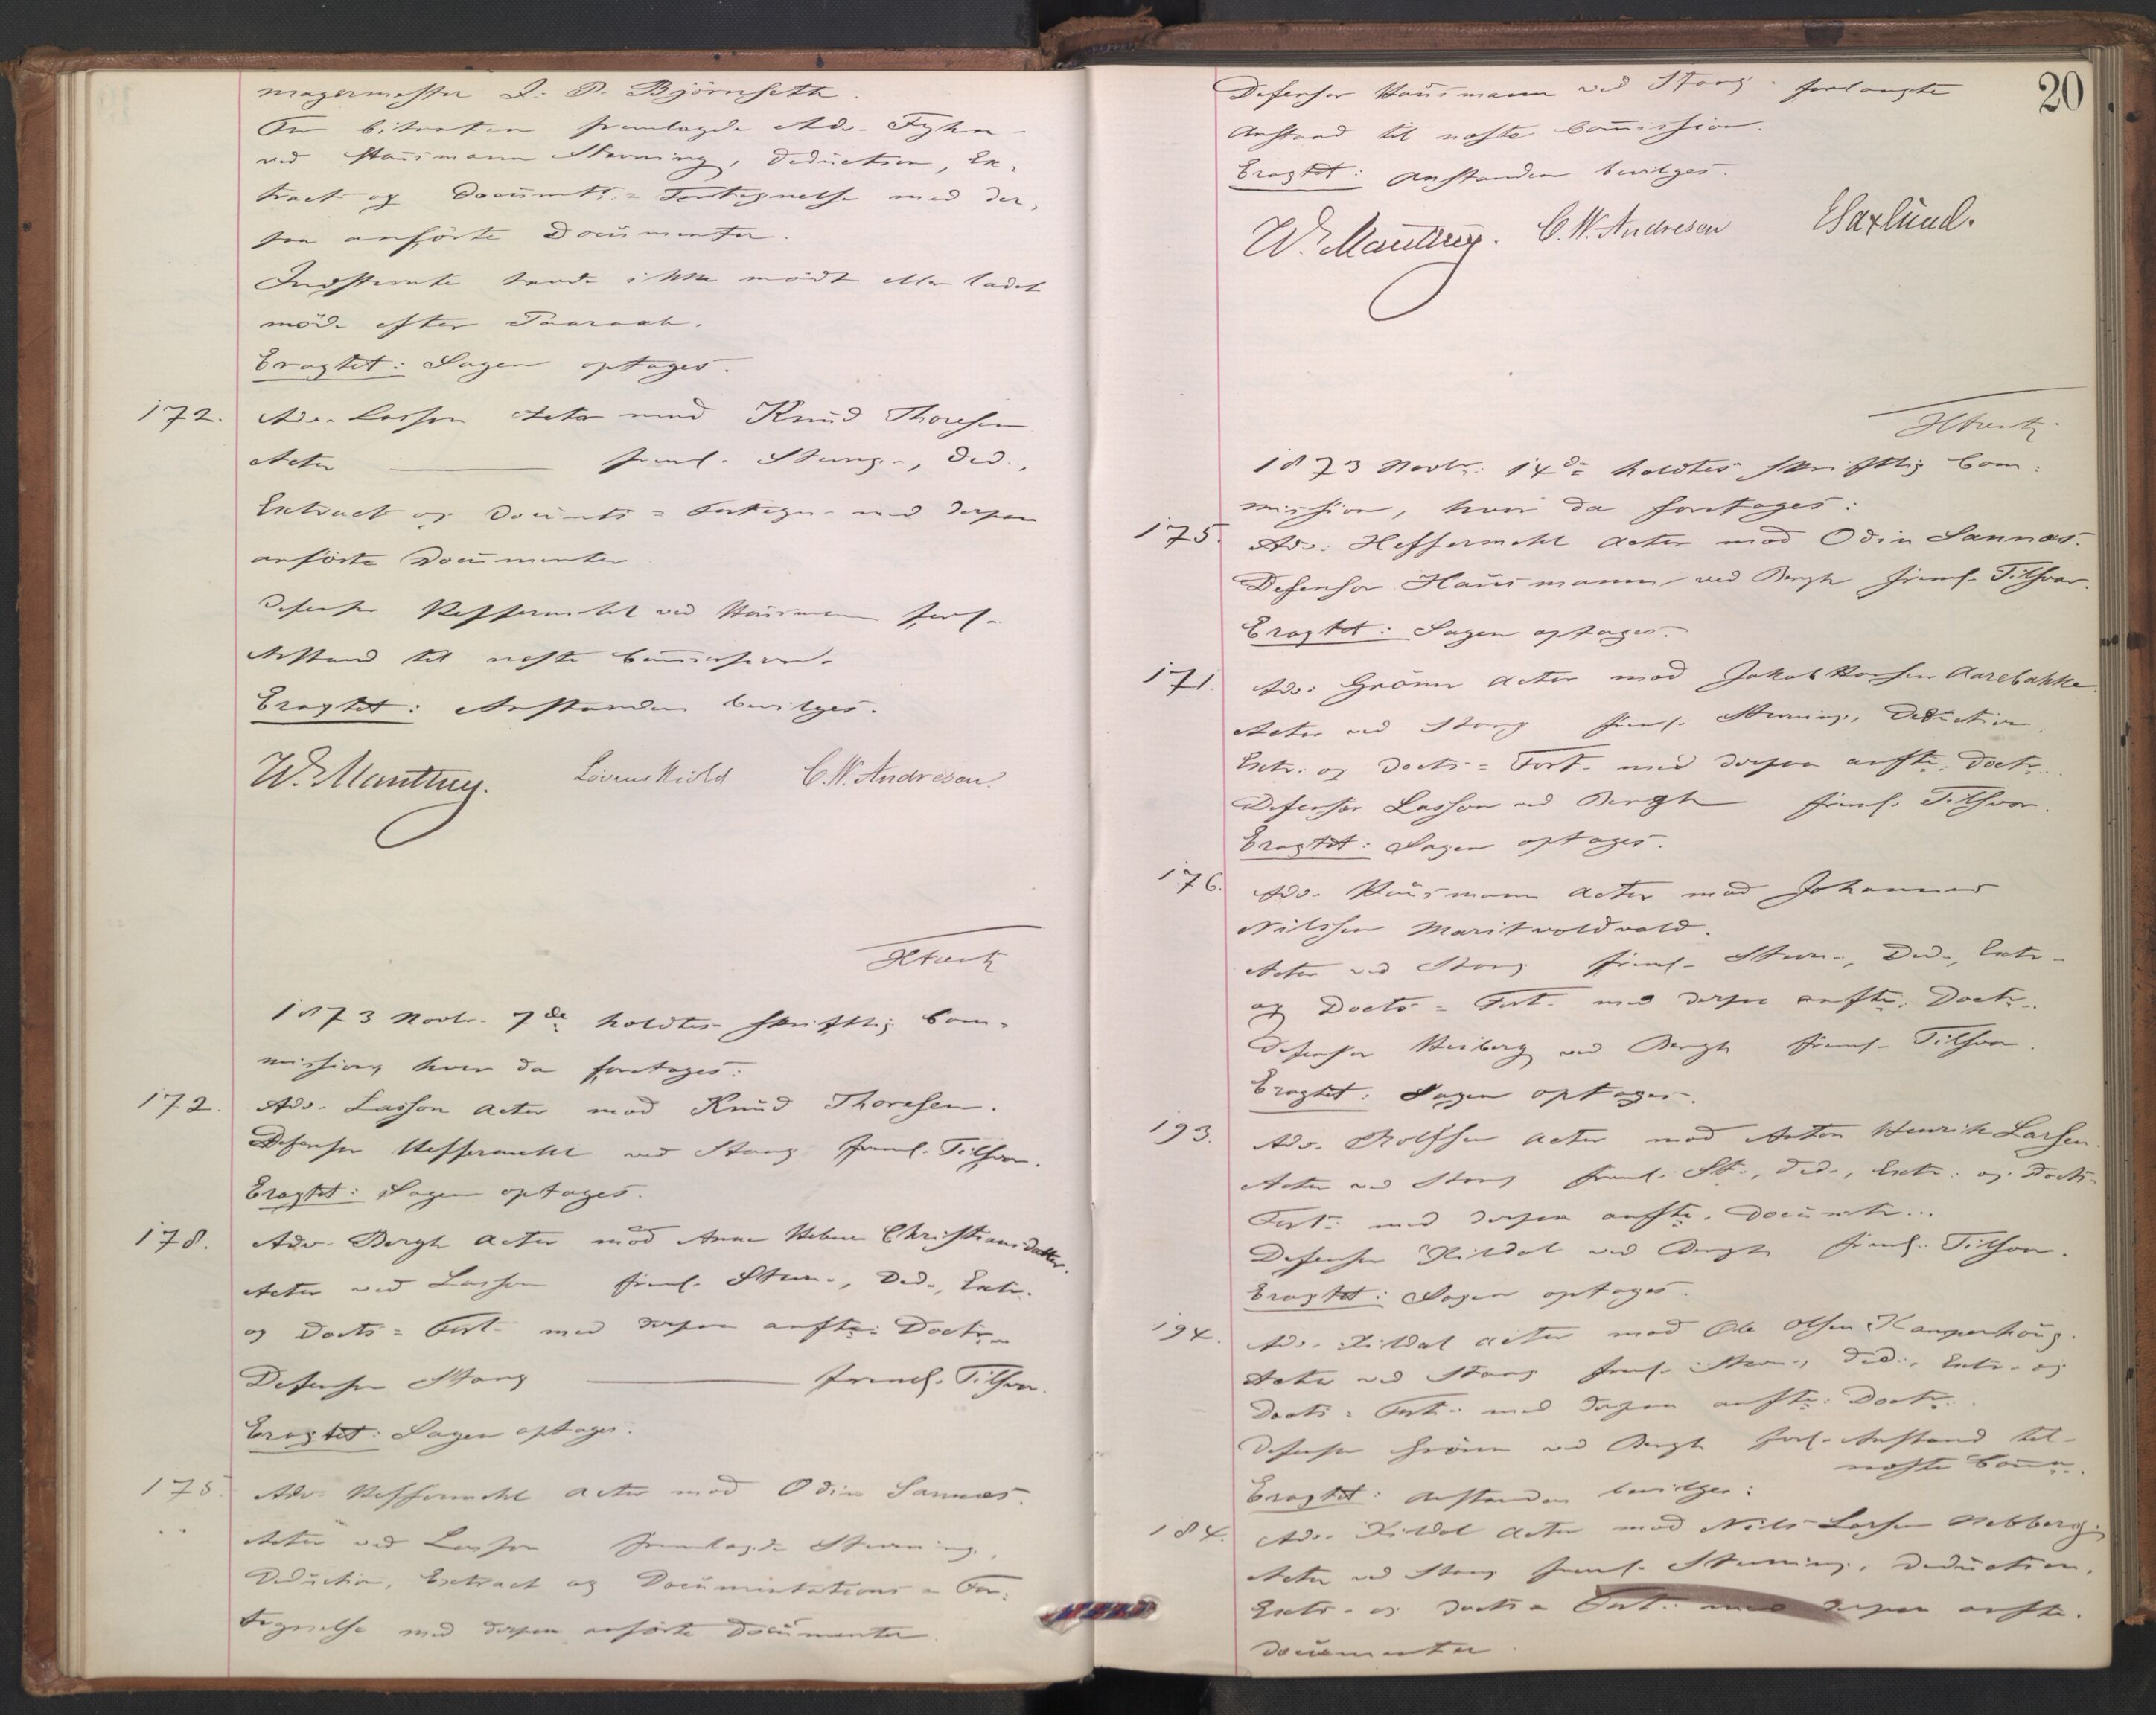 magermester J. P. Björnseth.
For Citanten fremlagde Adv. Fyhn
ved Hausmann Stevning, Deduction, Ex-
tract og Documts.= Fortegnelse med der-
paa anförte Documenter.
Indstevnte havde ikke mödt eller ladet
möde efter Paaraab.
Eragtet: Sagen optages.
172. Adv. Lasson Actor mod Knud Thoresen
Actor freml. Stevng., Ded.,
Extract og Docmts = Fortegn. med derpaa
anförte Documenter
Defensor Heffermehl ved Hausmann forl.
Anstand til næste Commission.
Eragtet: Anstanden bevilges.
W. Manthey. Løvenskiold C. W. Andresen.
1873 Novbr. 7de holdtes skriftlig Com-
mission, hvor da foretoges:
172. Adv. Lasson Actor mod Knud Thoresen.
Defensor Heffermehl ved Stang freml. Tilsvar.
Eragtet: Sagen optages.
178. Adv. Bergh Actor mod Anne Helene Christiansdatter.
Actor ved Lasson freml. Stevn., Ded., Extr.
og Docts = Fort. med derpaa anfte: Doctr.
Defensor Stang freml. Tilsvar.
Eragtet: Sagen optages.
175. Adv. Heffermehl Actor mod Odin Sannæs.
Actor ved Lasson fremlagde Stevning,
Deduction, Extract og Documentations = For-
tegnelse med derpaa anförte Documenter.
20
Defensor Hausmann ved Stang forlangte
Anstand til næste Commission.
Eragtet: Anstanden bevilges.
W. Manthey. C. W. Andresen E Saxlund.
1873 Novbr. 14de holdtes skriftlig Com-
mission, hvor da foretoges:
175. Adv. Heffermehl Actor mod Odin Sannæs.
Defensor Hausmann ved Bergh freml. Tilsvar.
Eragtet: Sagen optages.
171. Adv. Grönn Actor mod Jakob Hansen Aarebakke.
Actor ved Stang freml. Stevning, Deduction,
Extr. og Docts = Fort. med derpaa anfte. Doctr.
Defensor Lasson ved Bergh freml. Tilsvar.
Eragtet: Sagen optages.
176. Adv. Hausmann Actor mod Johannes
Nilssen Maritvoldvald.
Actor ved Stang freml. Stevn., Ded., Extr.
og Docts = Fort. med derpaa anfte. Doctr.
Defensor Heiberg ved Bergh freml. Tilsvar.
Eragtet: Sagen optages.
193. Adv. Rolfsen Actor mod Anton Henrik Larsen.
Actor ved Stang freml. St., Ded., Extr. og Docts-
Fort. med derpaa anfte. Documtr.
Defensor Kildal ved Bergh freml. Tilsvar.
Eragtet: Sagen optages.
194. Adv. Kildal Actor mod Ole Olsen Kamperhaug.
Actor ved Stang freml. Stevn., Ded., Extr. og
Docts = Fort. med derpaa anfte: Doctr.
Defensor Grönn ved Bergh forl. Anstand til
næste Comm.
Eragtet: Anstanden bevilges:
184. Adv. Kildal Actor mod Nils Larsen Nebberg.
Actor ved Stang freml. Stevning, Deduction,
Extr. og Docts = Fort. med derpaa anfte.
Documenter.